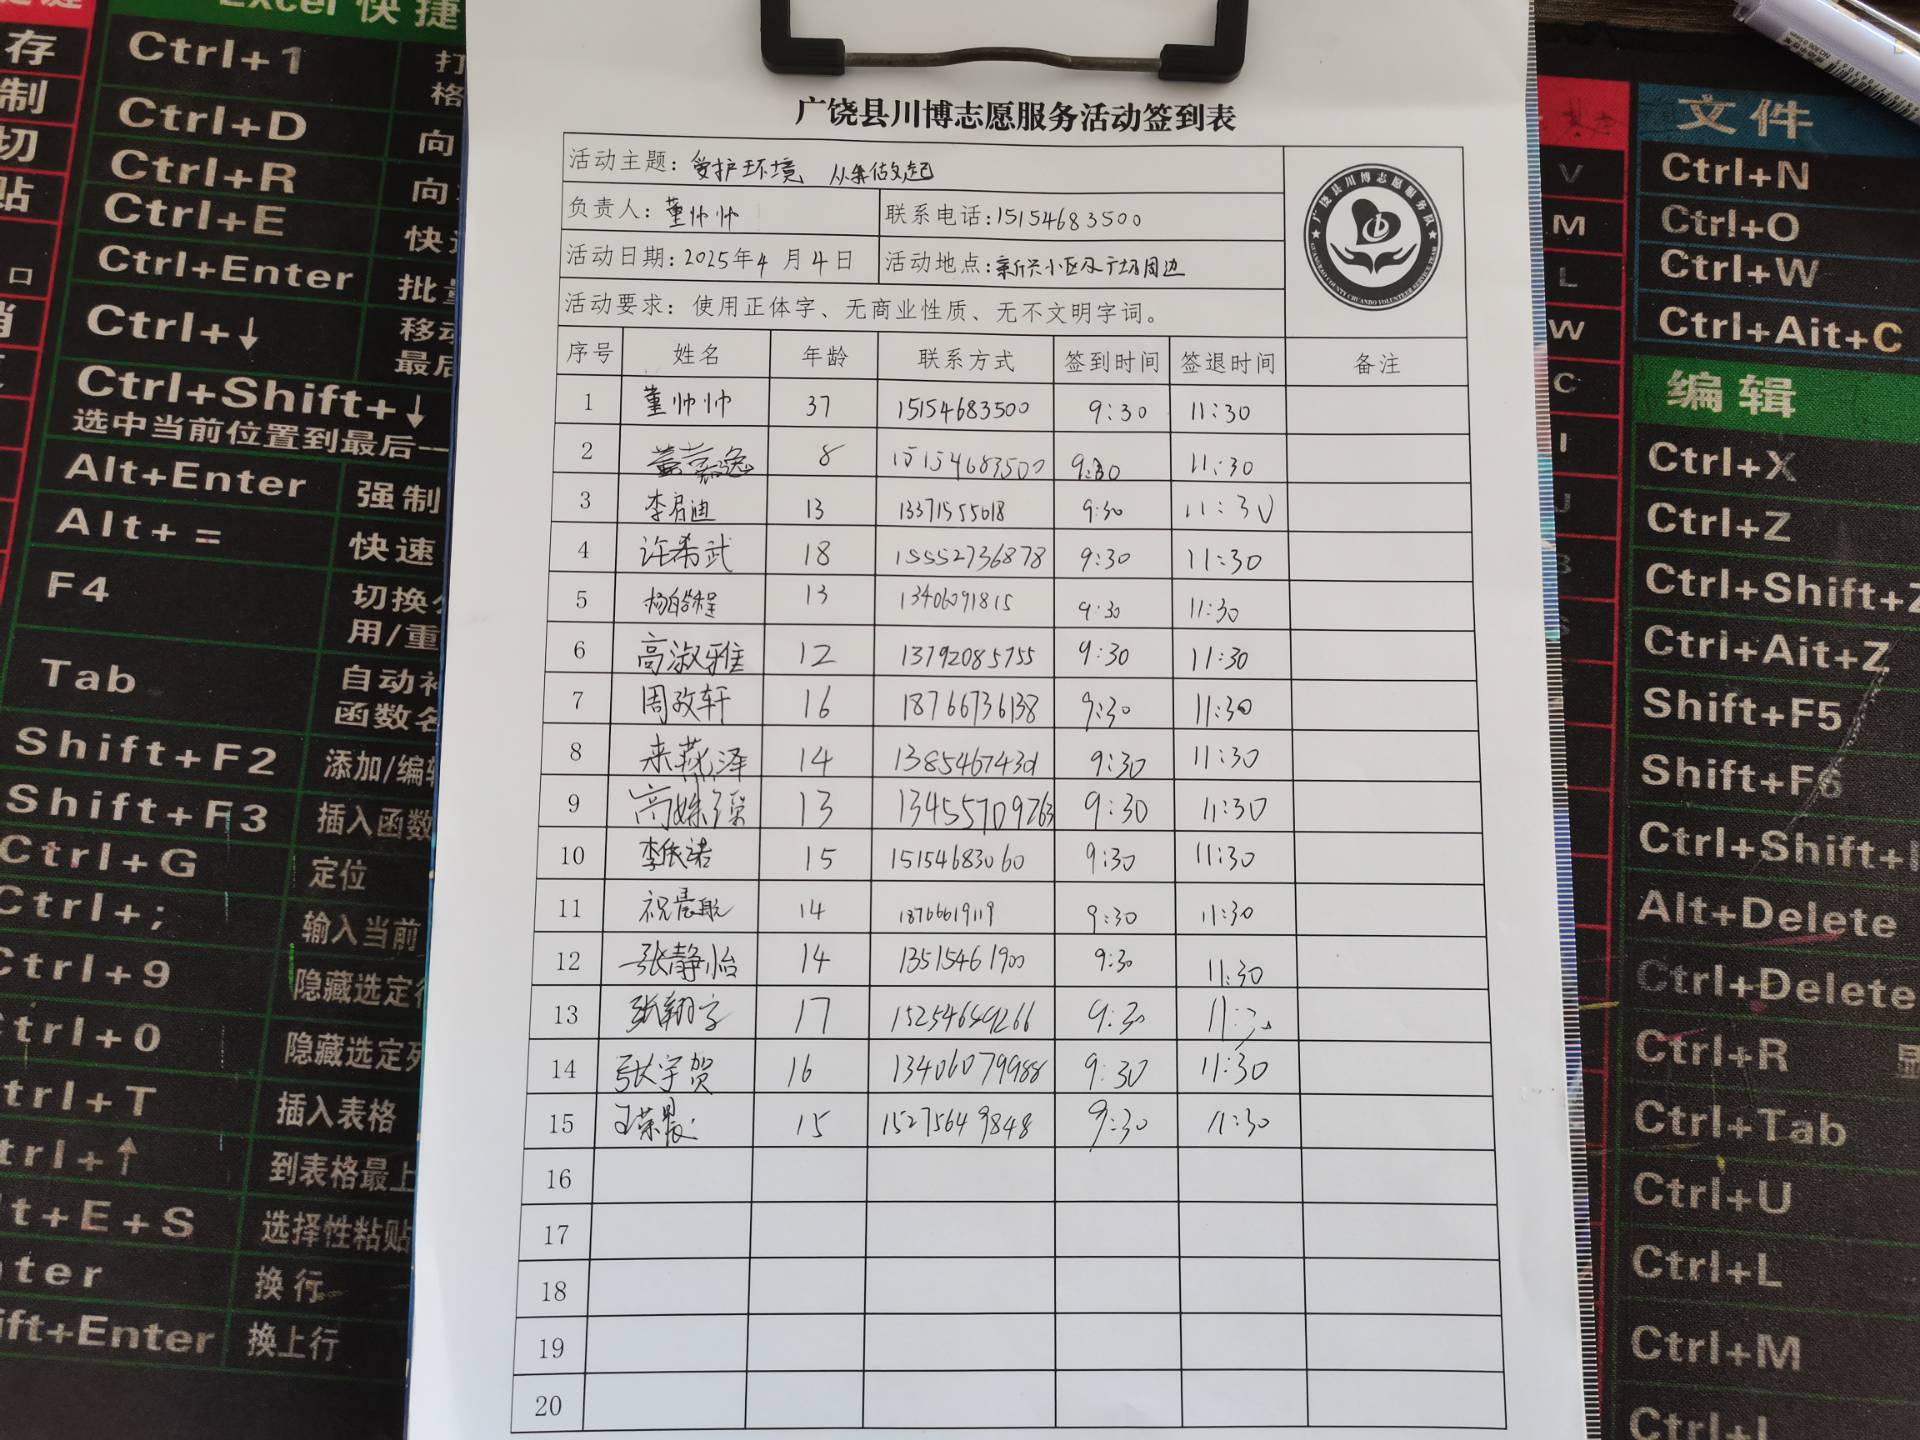 广饶县川博志愿服务活动签到表
活动主题：爱护环境 从我做起
负责人：董帅帅 联系电话:15154683500
活动日期：2025年4月4日 活动地点:新兴小区及广场周边
活动要求：使用正体字、无商业性质、无不文明字词。
广饶县川博志愿服务队
序号 姓名 年龄 联系方式 签到时间 签退时间 备注
1 董帅帅 37 15154683500 9:30 11:30
2 董嘉逸 8 15154683500 9:30 11:30
3 李启迪 13 13371555618 9:30 11:30
4 许希武 18 15552736878 9:30 11:30
5 13 13406091815 9:30 11:30
6 高淑雅 12 13792085755 9:30 11:30
7 周政轩 16 18766736138 9:30 11:30
8 来燕泽 14 9:30 11:30
9 13 13455709763 9:30 11:30
10 李依诺 15 15154683060 9:30 11:30
11 祝晨航 14 9:30 11:30
12 张静怡 14 13515461900 9:30 11:30
13 张翔宇 17 15254649266 9:30 11:30
14 张宇贺 16 13406079988 9:30 11:30
15 王荣晨 15 15275649848 9:30 11:30
16
17
18
19
20
Excel 快捷
存
制
切
贴
Ctrl+1
Ctrl+D 向
Ctrl+R 向
Ctrl+E 快
Ctrl+Enter 批量
Ctrl+↓ 移动
最后
Ctrl+Shift+↓
选中当前位置到最后一
Alt+Enter 强制
Alt+ = 快速
F4 切换
用/重
Tab 自动
函数名
Shift+F2 添加/编辑
Shift+F3 插入函数
Ctrl+G 定位
Ctrl+; 输入当前
Ctrl+9 隐藏选定行
Ctrl+0 隐藏选定列
Ctrl+T 插入表格
Ctrl+↑ 到表格最上
Alt+E+S 选择性粘贴
Enter 换行
Shift+Enter 换上行
文件
Ctrl+N
Ctrl+O
Ctrl+W
Ctrl+Ait+C
编辑
Ctrl+X
Ctrl+Z
Ctrl+Shift+Z
Ctrl+Ait+Z
Shift+F5
Shift+F6
Ctrl+Shift+
Alt+Delete
Ctrl+Delete
Ctrl+R 显
Ctrl+Tab
Ctrl+U
Ctrl+L
Ctrl+M
V
M
L
W
C
I
J